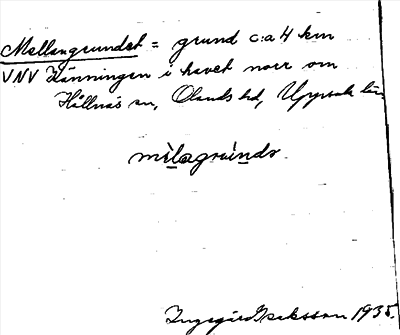 Mellangrundet = grund c:a 4 km
VNV Känningen i havet norr om
Hållnäs sn, Olands hd, Uppsala län.
mèlagrúnds
Ingegärd Isaksson 1935.